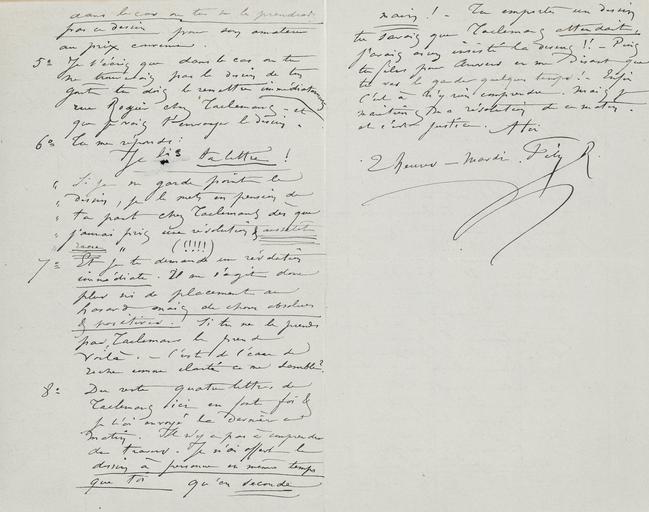 dans le cas où tu ne le prendrais
pas ce dessin pour son amateur
au prix convenu.
5º Je t'écris que dans le cas où tu
ne trouverais pas le dessin de ton
goût tu dois le remettre immédiatement
rue Royale chez Taelemans et
que je vais t'envoyer le dessin.
6º Tu me réponds :
Je lis ta lettre !
" Si je ne garde point le
" dessin, je le mets en pension de
" ta part chez Taelemans dès que
" j'aurai pris une résolution &
" (!!!!)
7º Et je te demande une résolution
immédiate. Il ne s'agit donc
plus ici de placement au
hasard mais de choses absolues
& positives. Si tu ne le prends
pas, Taelemans le prend
Voilà. – C'est de l'eau de
roche comme clarté ce me semble ?
8º Du reste quatre lettres de
Taelemans sont en font foi &
je t'ai envoyé la dernière ce
matin. Il n'y a pas à comprendre
de travers. Je n'ai offert le
dessin à personne en même temps
que toi qu'en seconde
main ! – Tu emportes un dessin
tu savais que Taelemans attendait,
j'avais assez insisté là dessus !! – Puis
tu files pour Anvers en me disant que
tu vas le garder quelque temps ! – Enfin
c'est à n'y rien comprendre. Mais je
maintiens ma résolution de ce matin.
et c'est justice. A toi
2 heures – Mardi. Fély R